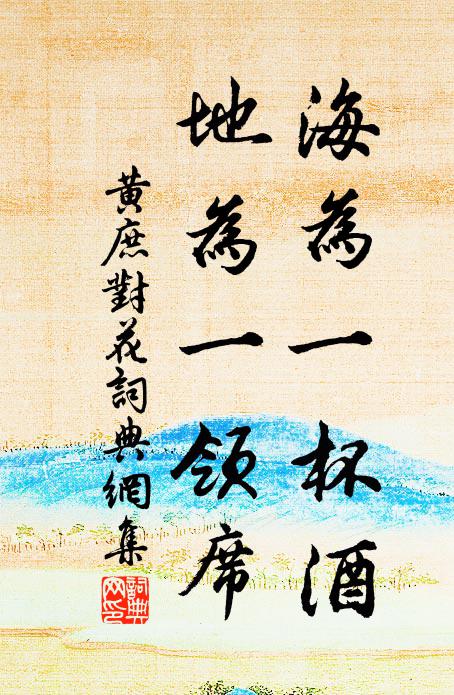 海為一杯酒
地為一領席
黃庶對花詞典網集
詞典